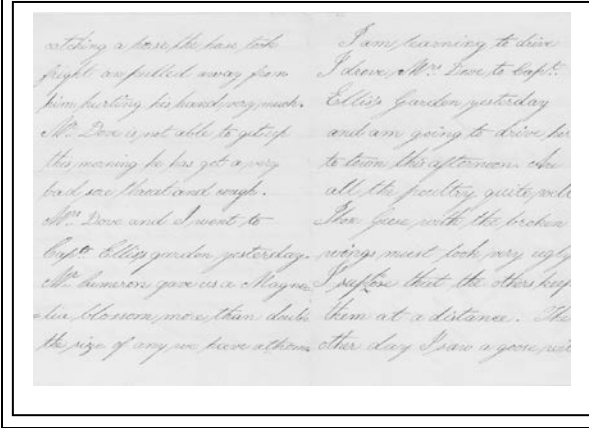 catching a horse, the horse took
fright and pulled away from
him hurting his hand very much.
Mr. Dove is not able to get up
this morning he has got a very
bad sore throat and cough.
Mrs. Dove and I went to
Capt. Ellis's garden yesterday.
Mr. Cameron gave us a Magno
-lia blossom, more than double
the size of any we have at home
I am learning to drive
I drove Mrs. Dove to Capt.
Ellis's Garden yesterday
and am going to drive her
to town this afternoon. Are
all the poultry quite well
Those Geese with the broken
wings must look very ugly
I suppose that the others keep
them at a distance. The
other day I saw a goose with